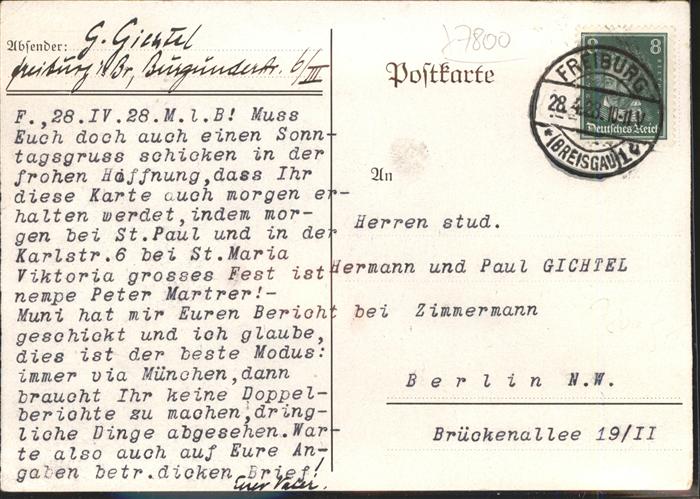 Absender: G. Gichtel
Freiburg i/Br, Burgunderstr. 6/III
17800
Postkarte
8 8
Deutsches Reich
FREIBURG
28.4.28.
*(BREISGAU)1
F.,28.IV.28.M.l.B! Muss
Euch doch auch einen Sonn-
tagsgruss schicken in der
frohen Hoffnung,dass Ihr
diese Karte auch morgen er-
halten werdet,indem mor-
gen bei St.Paul und in der
Karlstr.6 bei St.Maria
Viktoria grosses Fest ist
nempe Peter Martrer!-
Muni hat mir Euren Bericht
geschickt und ich glaube,
dies ist der beste Modus:
immer via München,dann
braucht Ihr keine Doppel-
berichte zu machen,dring-
liche Dinge abgesehen.War-
te also auch auf Eure An-
gaben betr.dicken Brief!
Euer Vater.
An
Herren stud.
Hermann und Paul GICHTEL
bei Zimmermann
Berlin N.W.
Brückenallee 19/II